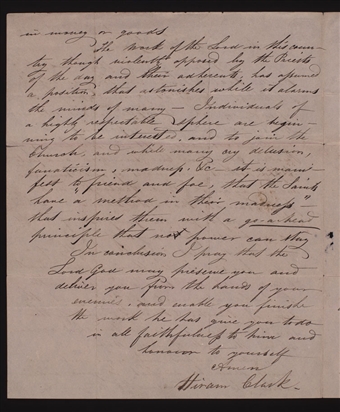 in money or goods
The Work of the Lord in this coun-
try though violently opposed by the Priests
of the day and their adherents, has assumed
a position, that astonishes while it alarms
the minds of many — Individuals of
a highly respectable sphere are begin-
ning to be interested, and to join the
Church, and while many cry delusion,
fanaticism, madness, &c. it is mani-
fest to freind and foe, that the Saints
have "a method in their madness" —
that inspires them with a go-a-head
principle that no power can stay
In conclusion I pray that the
Lord God may preserve you and
deliver you from the hands of your
enemies, and enable you finish
the work he has give you to do
in all faithfulness to him and
honour to yourself
Amen
Hiram Clark —